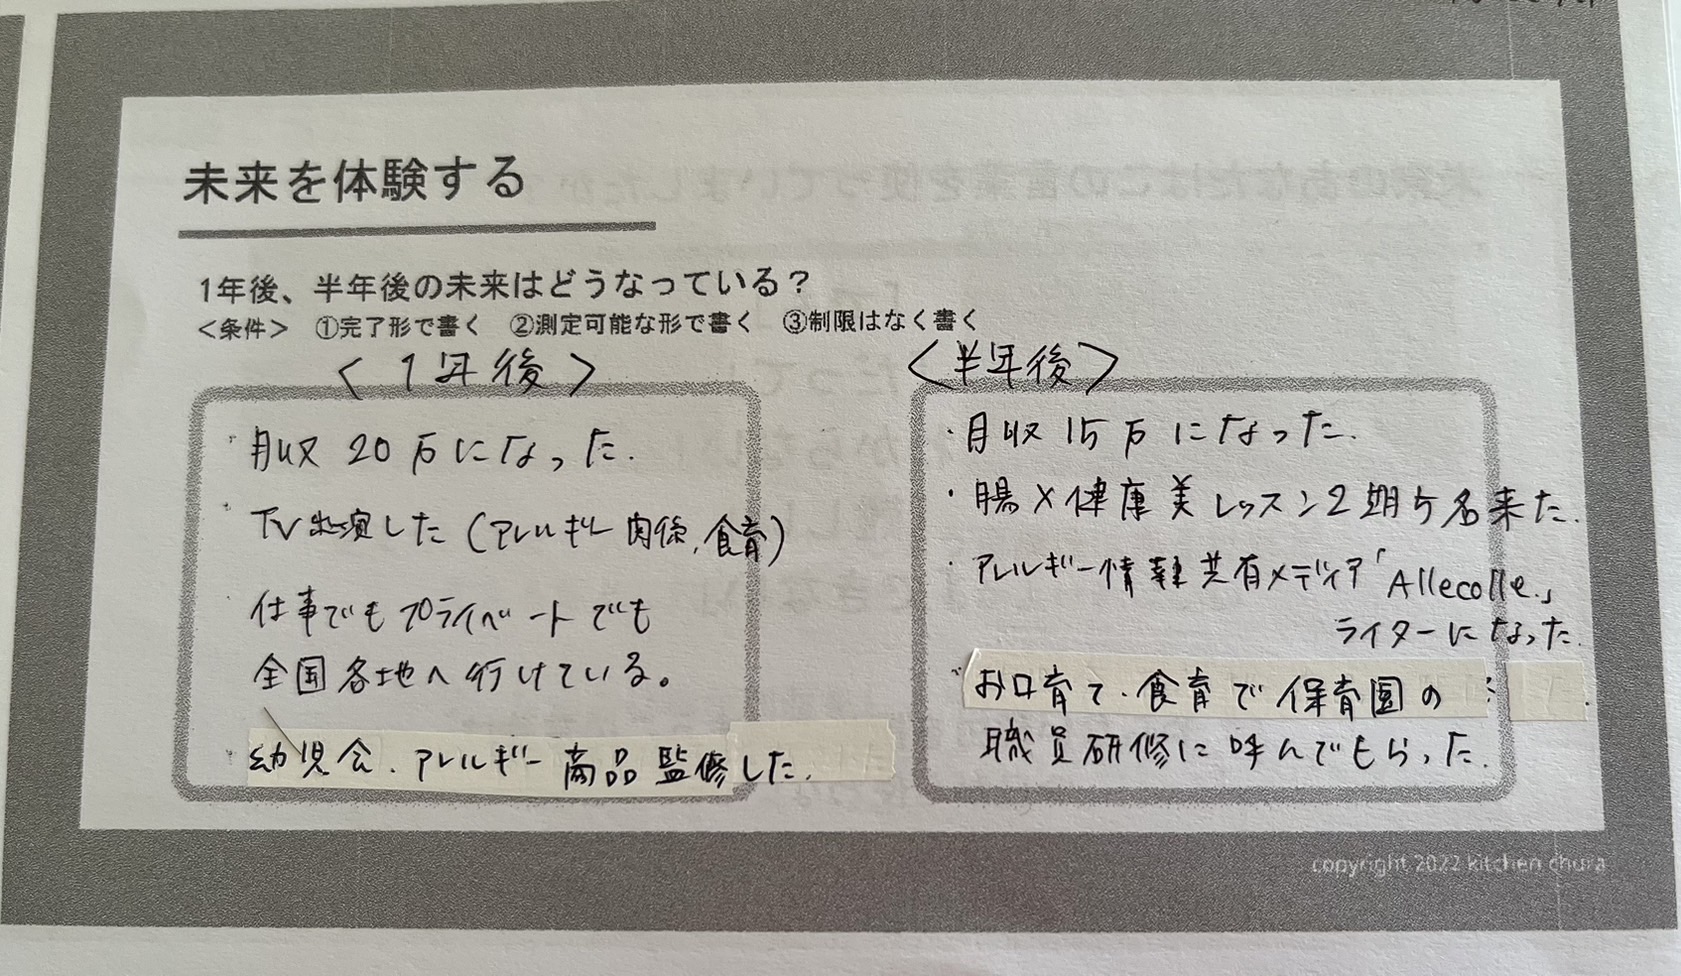 未来を体験する
1年後、半年後の未来はどうなっている？
＜条件＞ ①完了形で書く ②測定可能な形で書く ③制限はなく書く
＜1年後＞
・月収20万になった.
・TV出演した(アレルギー関係,食育)
仕事でもプライベートでも
全国各地へ行けている。
・幼児食.アレルギー商品監修した.
＜半年後＞
・月収15万になった.
・腸×健康美レッスン2期5名来た.
・アレルギー情報共有メディア「Allecolle.」
ライターになった.
・お口育て.食育で保育園の
職員研修に呼んでもらった.
copyright 2022 kitchen chura